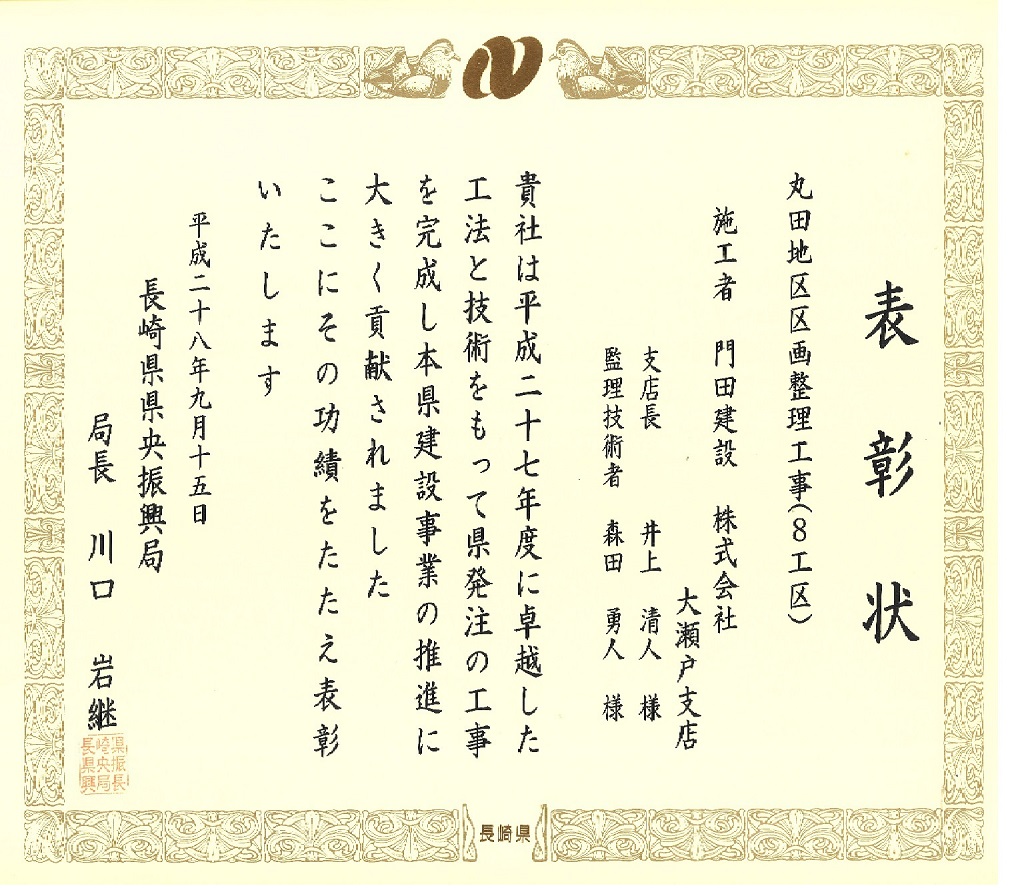 表彰状
丸田地区区画整理工事(8工区)
施工者 門田建設 株式会社
大瀬戸支店
支店長 井上 清人 様
監理技術者 森田 勇人 様
貴社は平成二十七年度に卓越した
工法と技術をもって県発注の工事
を完成し本県建設事業の推進に
大きく貢献されました
ここにその功績をたたえ表彰
いたします
平成二十八年九月十五日
長崎県県央振興局
局長 川口 岩継
長崎県
県央振
興局長
長崎県